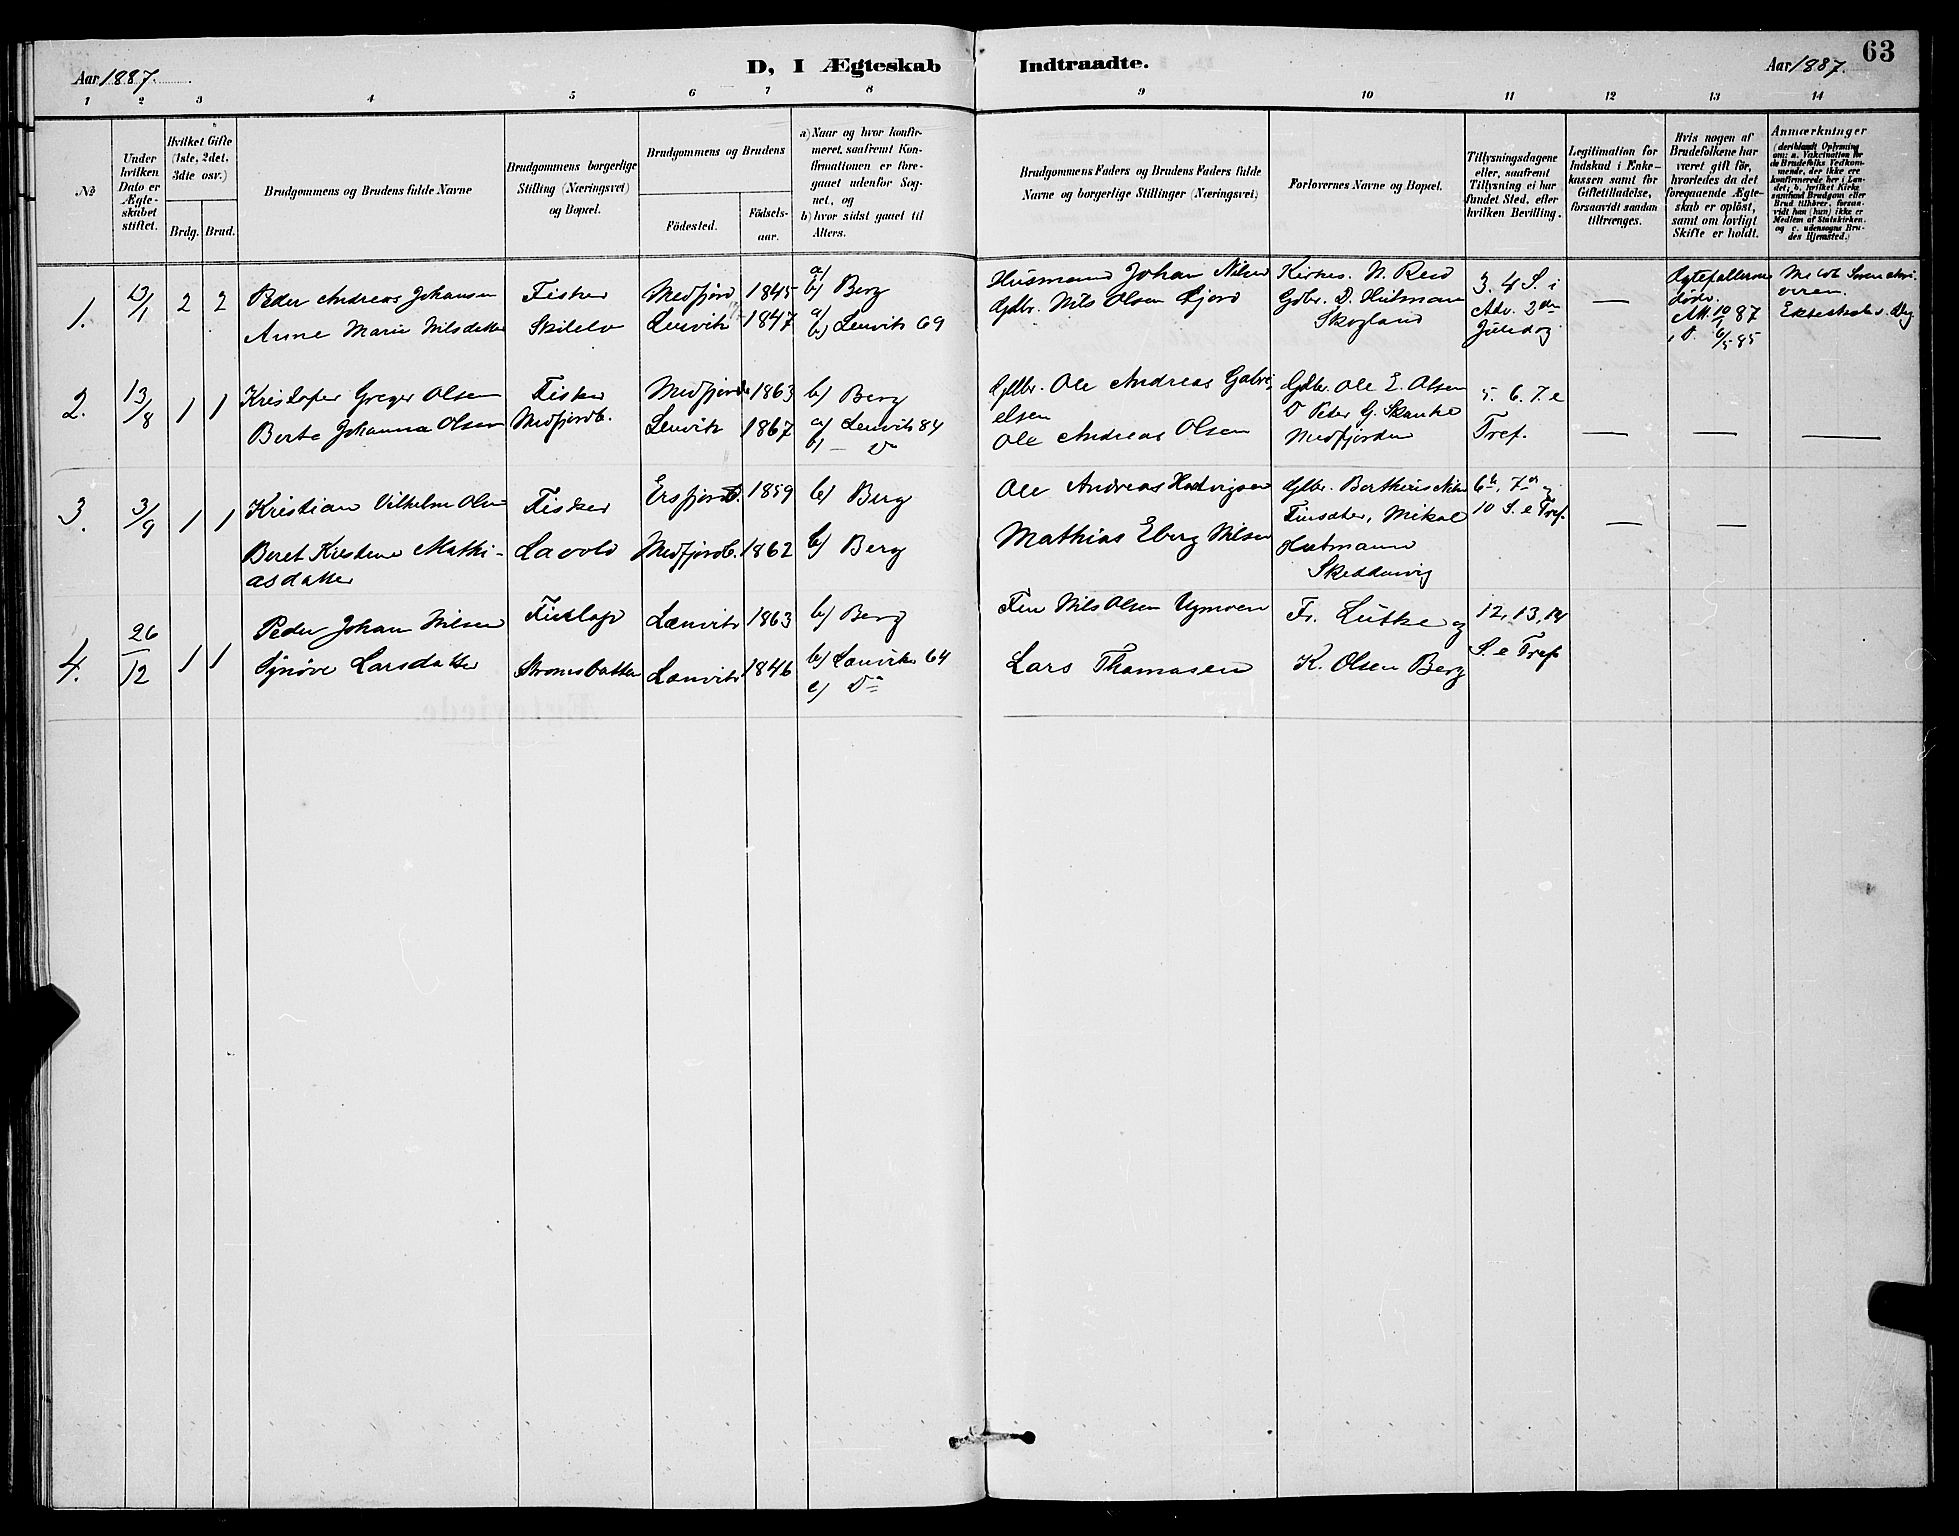 63
Aar 1887.
D, I Ægteskab Indtraadte.
Aar 1887.
1 2 3 4 5 6 7 8 9 10 11 12 13 14
No
Under hvilken Dato er Ægteskabet stiftet.
Hvilket Gifte (1ste, 2det, 3dte osv.)
Brdg. Brud.
Brudgommens og Brudens fulde Navne
Brudgommens borgerlige Stilling (Næringsvei) og Bopæl.
Brudgommens og Brudens
Födested.
Födsels-aar.
a) Naar og hvor konfirmeret, saafremt Konfirmationen er foregaaet udenfor Sognet, og
b) hvor sidst gaaet til Alters.
Brudgommens Faders og Brudens Faders fulde Navne og borgerlige Stillinger (Næringsvei)
Forlovernes Navne og Bopæl.
Tillysningsdagene eller, saafremt Tillysning ei har fundet Sted, efter hvilken Bevilling.
Legitimation for Indskud i Enkekassen samt for Giftetilladelse, forsaavidt saadan tiltrænges.
Hvis nogen af Brudefolkene har været gift för, hvorledes da det foregaaende Ægteskab er oplöst, samt om lovligt Skifte er holdt.
Anmærkninger (deriblandt Oplysning om: a. Vakcination for de Brudefolks Vedkommende, der ikke ere konfirmerede her i Landet; b. hvilket Kirkesamfund Brudgom eller Brud tilhörer, forsaavidt han (hun) ikke er Medlem af Statskirken, og c. udensogns Brudes Hjemsted.)
1. 13/1 2 2
Peder Andreas Johansen
Anne Marie Nilsdatter
Fisker
Skitelv
Medfjord 1845
Lenvik 1847
a)
b) Berg
a)
b) Lenvik 69
Husmand Johan Nilsen
Gdbr. Nils Olsen Gjord
Gdbr. D. Hutman
Skogland
3. 4 S. i
Adv. 2den
Juledag
—
Ægtefællerne
døde.
2. 13/8 1 1
Kristofer Greger Olsen
Berte Johanna Olsen
Fisker
Medfjordb.
Medfjord 1863
Lenvik 1867
b) Berg
a) Lenvik 84
b) — Do
Gdbr. Ole Andreas Gabri-
elsen
Ole Andreas Olsen
Gdbr. Ole E. Olsen
O Peder G. Skanke
Medfjorden
5. 6. 7. e
Tref.
— — —
3. 3/9 1 1
Kristian Vilhelm Olsen
Beret Kirstine Mathi-
asdatter
Fisker
Lavold
Ersfjordb. 1859
Medfjordb. 1862
b) Berg
b) Berg
Ole Andreas Hedvigsen
Mathias Eberg Nilsen
Gdbr. Berthius Nilsen
Finsæter, Mikal
Hutmann
6te, 7de og
10 S. e Tref.
— —
4. 26/12 1 1
Peder Johan Nilsen
Synöve Larsdatter
Strömsbotten
Lænvik 1863
Lænvik 1846
b) Berg
b) Lænvik 64
c) Do
Nils Olsen
Lars Thomasen
Fr. Lutke og
K. Olsen Berg
12, 13, 14
S. e Tref